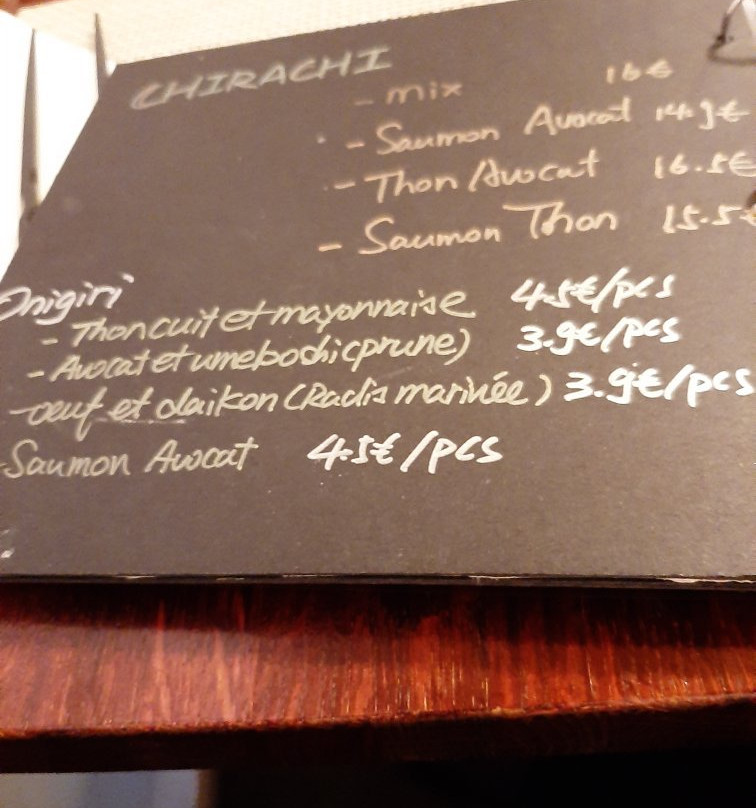 CHIRACHI
- mix 16€
- Saumon Avocat 14.9€
- Thon Avocat 16.5€
- Saumon Thon 15.5€
Onigiri
- Thon cuit et mayonnaise 4.5€/pcs
- Avocat et umebochi (prune) 3.9€/pcs
- œuf et daikon (Radis marinée) 3.9€/pcs
- Saumon Avocat 4.5€/pcs